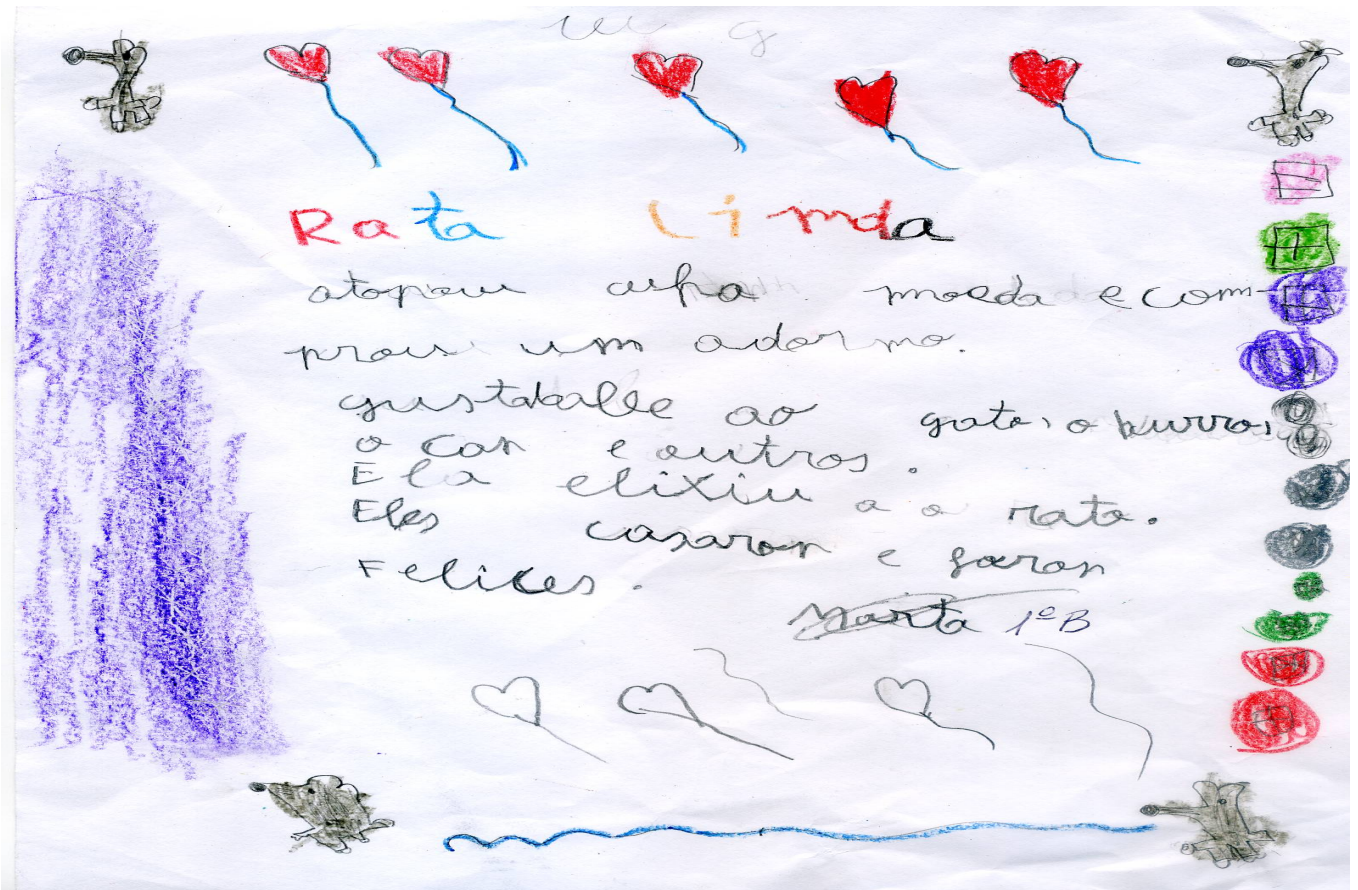 Rata Linda
atopou unha moeda e com-
prou un adorno.
gustaballe ao gato, o burro,
o can e outros.
Ela elixiu a o rato.
Eles casaron e foron
Felices.
Marta 1º B